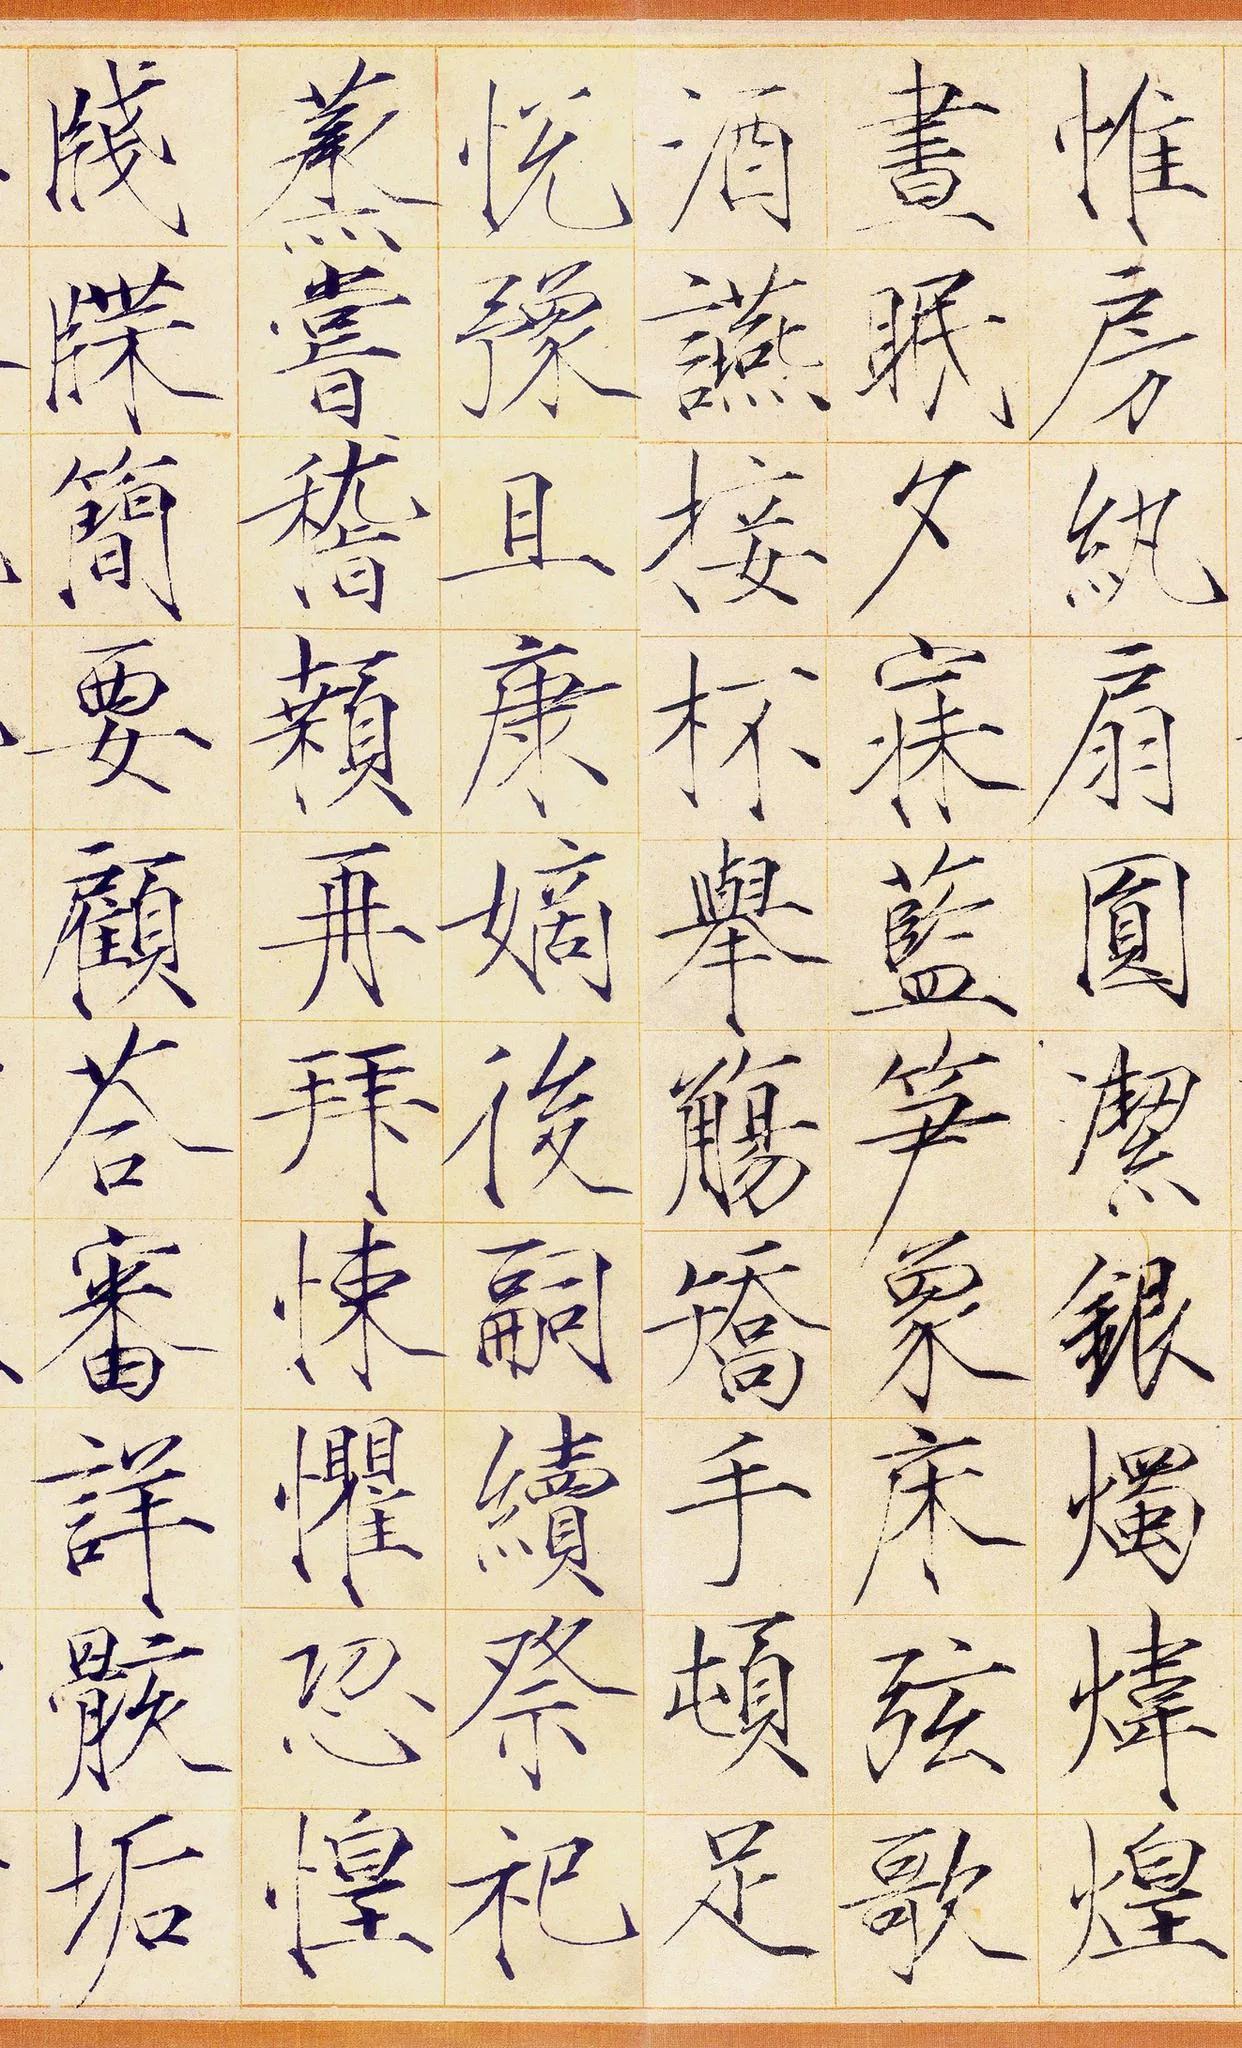 帷房紈扇圓潔銀燭煒煌
晝眠夕寐藍笋象床弦歌
酒讌接杯舉觴矯手頓足
悅豫且康嫡後嗣續祭祀
蒸嘗稽顙再拜悚懼恐惶
牋牒簡要顧荅審詳骸垢